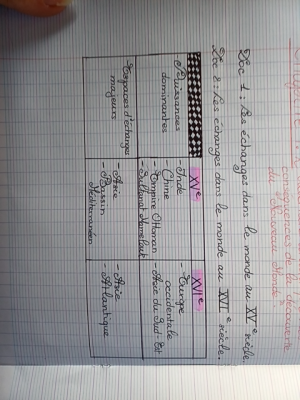 conséquences de la découverte
du Nouveau Monde
Doc 1 : Les échanges dans le monde au XVe siècle.
Doc 2 : Les échanges dans le monde au XVIe siècle.
XVe
XVIe
Puissances
dominantes
- Inde
Chine
- Empire Ottoman
- Sultanat Mamelouk
- Europe
occidentale
- Asie du Sud-Est
Espaces d'échanges
majeurs
- Asie
- Bassin
Méditerranéen
- Asie
- Atlantique